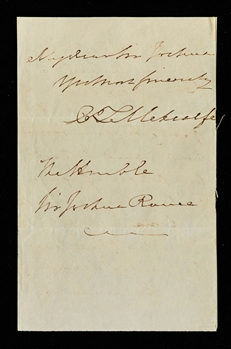 My dear Sir Joshua
Yrs most sincerely
C T Metcalfe
The Honble
Sir Joshua Rowe